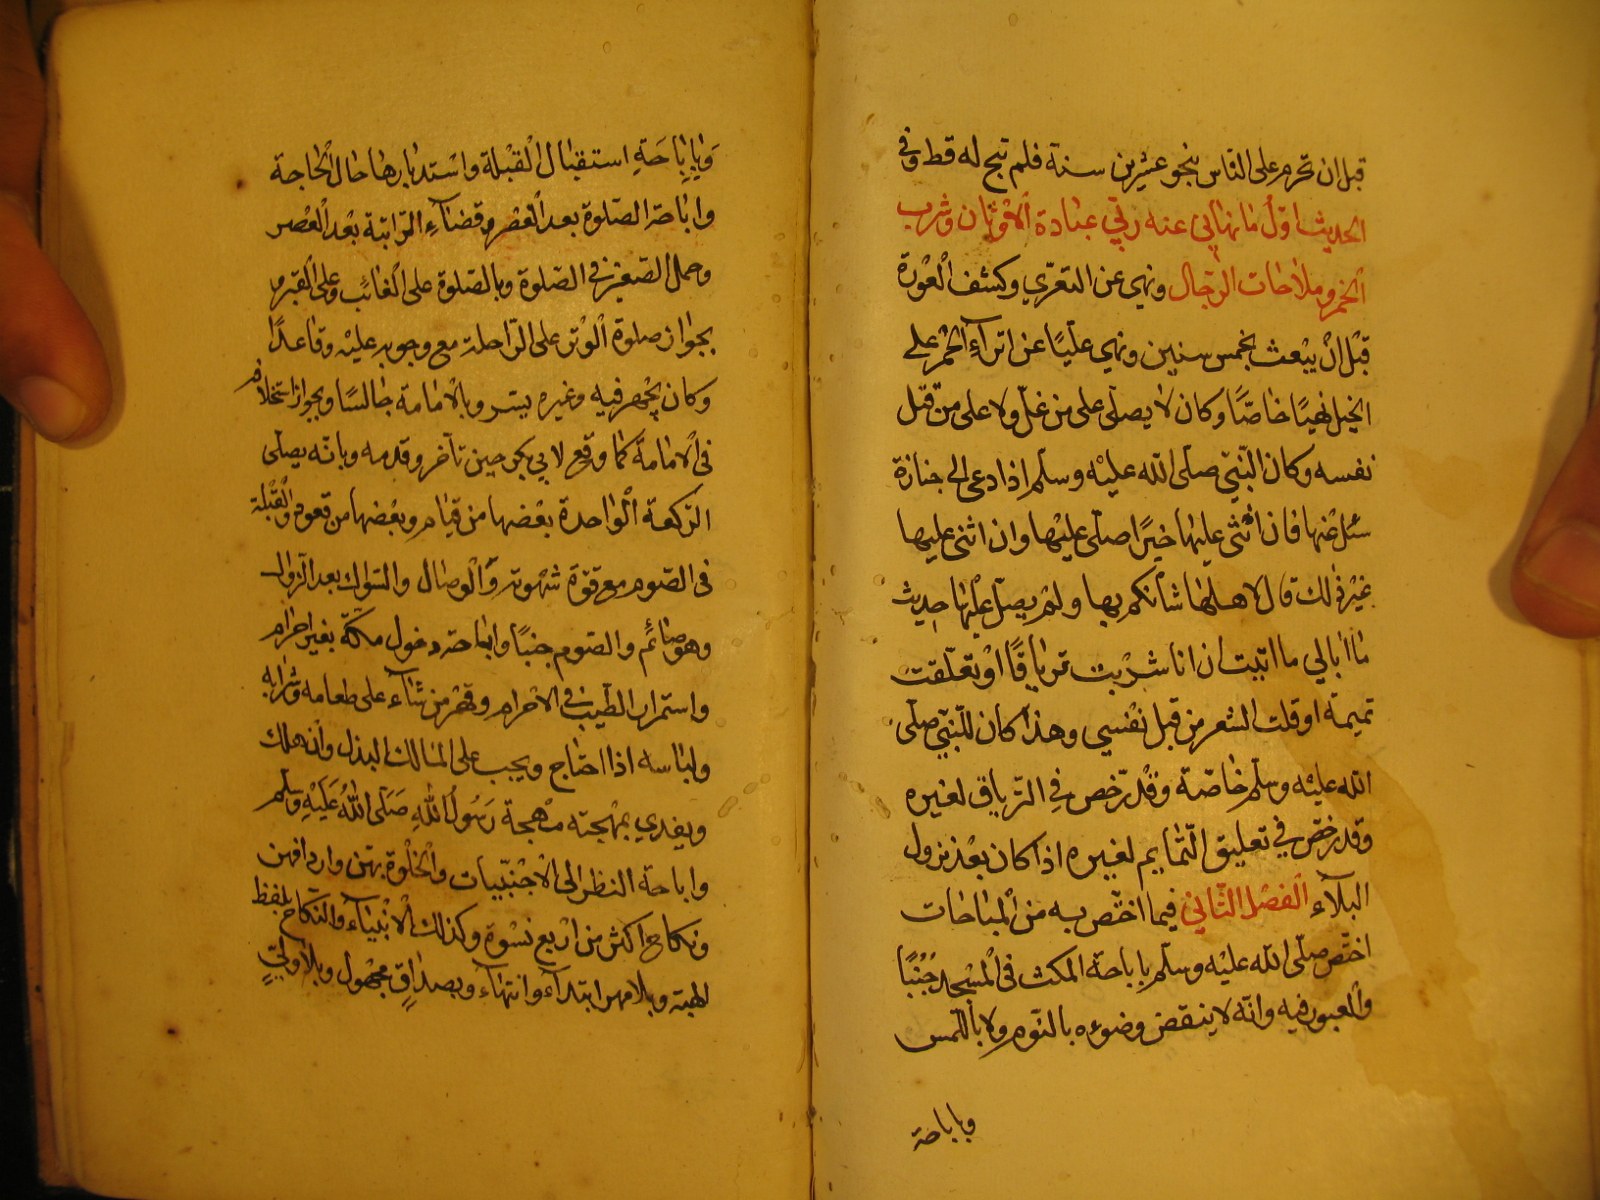 قبل ان تحرم على الناس بنحو عشرين سنة فلم تبح له قط وفي
الحديث اوّل ما نهاني عنه ربّي عبادة الاوثان وشرب
الخمر وملاحات الرّجال ونهي عن التعرّي وكشف العورة
قبل ان يبعث بخمس سنين ونهي عليّا عن انزآء الحمر على
الخيل نهيًا خاصًّا وكان لا يصلّي على من غلّ ولا على من قتل
نفسه وكان النّبيّ صلّى الله عليه وسلّم اذا دعى الى جنازة
سئل عنها فان اثنى عليها خيرًا صلّى عليها وان اثنى عليها
غير ذلك قال لاهلها شأنكم بها ولم يصلّ عليها حديث
ما ابالي ما اتيت ان انا شربت ترياقًا او تعلّقت
تميمة او قلت الشعر من قبل نفسي وهذا كان للنّبيّ صلّى
الله عليه وسلّم خاصّة وقد رخص في الترياق لغيره
وقد رخصّ في تعليق التّمايم لغيره اذا كان بعد نزول
البلآء الفصل الثّاني فيما اختّص به من المباحات
اختّص صلّى الله عليه وسلّم باباحة المكث في المسجد جُنُبًا
والعبور فيه وانّه لا ينقض وضوءه بالنّوم ولا باللّمس
وباباحة
وَبِاِبَاحَةِ استقبال القبلة واستدبارها حال الحاجة
واباحة الصّلوة بعد العصر وقضآءِ الرّاتبة بعد العصر
وحمل الصّغيز في الصّلوة وبالصّلوة على الغائب وعلى القبر و
بجواز صلوة الوتر على الرّاحلة مع وجوبه عليه وقاعدًا
وكان يجهر فيه وغيره يسر وبالامامة جالسًا وبجواز استخلافه
في الامامة كما وقع لابي بكر حين تأخر وقدمه وبانّه يصلّى
الرّكعة الواحدة بعضها من قيام وبعضها من قعود والقبلة
في الصّوم مع قوّة شهوته والوصال والسّواك بعد الزّوال
وهو صائم والصّوم جنبًا واباحة دخول مكّة بغير احرام
واستمرار الطّيب في الاحرام وقهر من شآء على طعامه وشرابه
ولباسه اذا احتاج ويجب على المالك البذل وان هلك
ويفدي بمهجته مهجة رَسُولُ اللهِ صَلّى اللهُ عَلَيْهِ وسلّم
واباحة النظر الى الاجنبّيات والخلوة بهنّ واردافهن
ونكاح اكثر من اربع نسوة وكذلك الانبيآء والنكاح بلفظ
الهبة وبلا مهر ابتدآء وانتهآء وبصداق مجهول وبلا وليّ